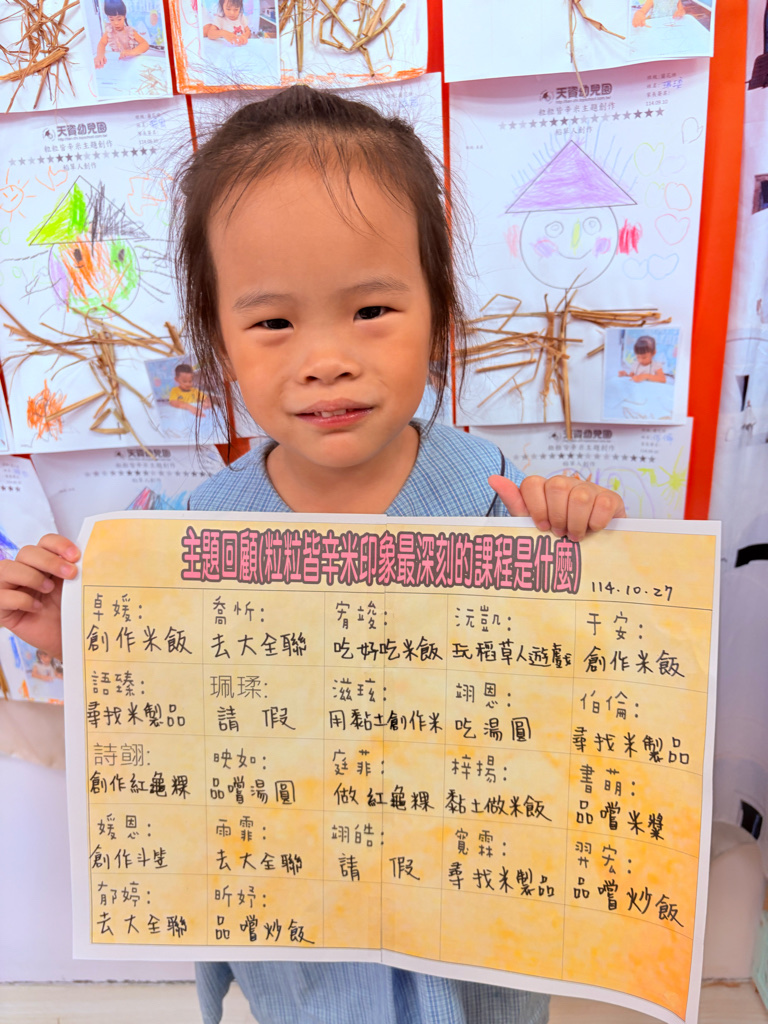 天資幼兒園
粒粒皆辛米主題創作
稻草人創作
天資幼兒園
粒粒皆辛米主題創作
稻草人創作
114.09.10
天資幼兒園
天資幼兒園
主題回顧(粒粒皆辛米印象最深刻的課程是什麼)
114.10.27
卓媛:
創作米飯
喬忻:
去大全聯
宥竣:
吃好吃米飯
沅凱:
玩稻草人遊戲
于安:
創作米飯
語臻:
尋找米製品
珮瑈:
請 假
滋玹:
用黏土創作米
翊恩:
吃湯圓
伯倫:
尋找米製品
詩翮:
創作紅龜粿
映如:
品嚐湯圓
庭菲:
做紅龜粿
梓揚:
黏土做米飯
書萌:
品嚐米漿
媛恩:
創作斗笠
雨霏:
去大全聯
翊皓:
請 假
寬霖:
尋找米製品
羿宏:
品嚐炒飯
郁婷:
去大全聯
昕妤:
品嚐炒飯